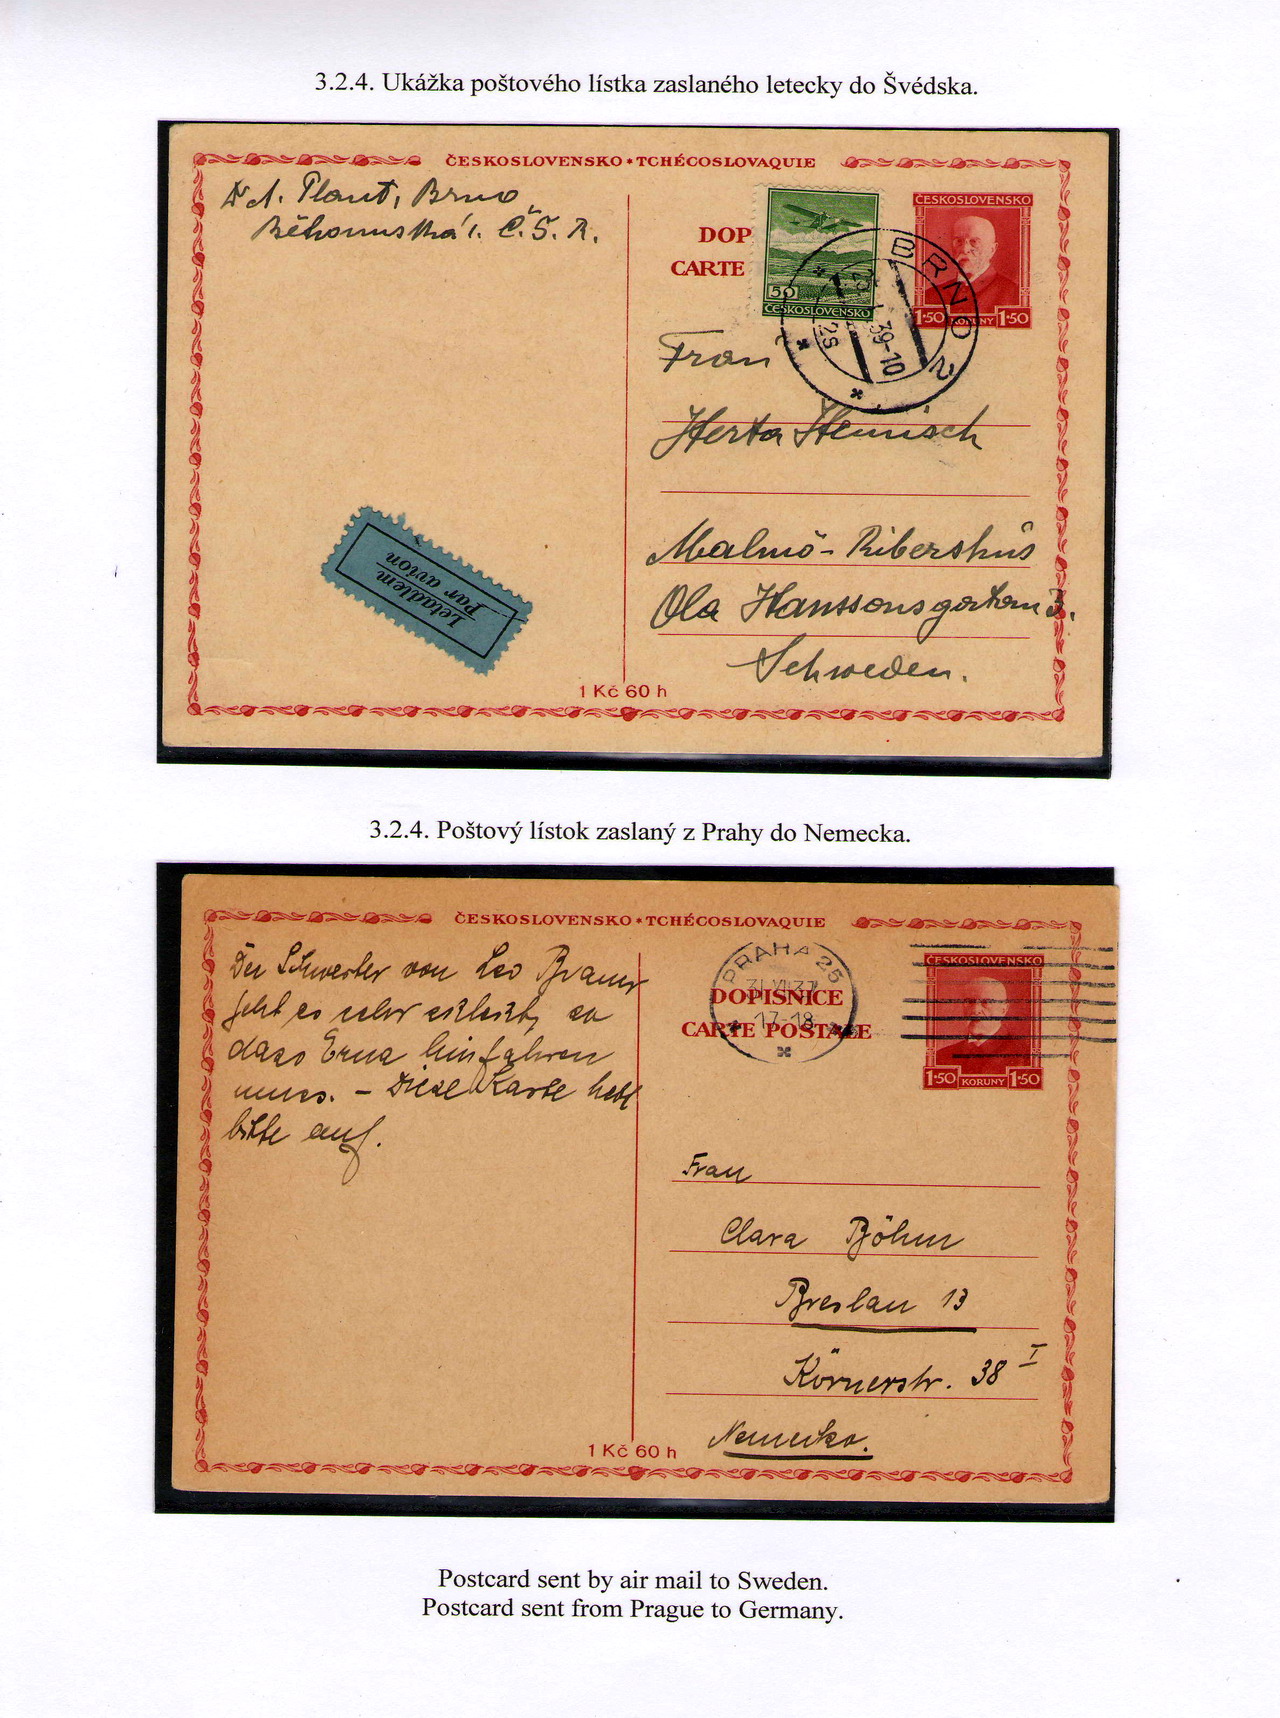 3.2.4. Ukážka poštového lístka zaslaného letecky do Švédska.
ČESKOSLOVENSKO * TCHÉCOSLOVAQUIE
Brno
Č.S.R.
DOP
CARTE
50
ČESKOSLOVENSKO
ČESKOSLOVENSKO
1·50 KORUNY 1·50
BRNO 2
39-10
Herta
Malmö - Ribershus
Ola Hanssonsgatan 3.
Schweden.
Letadlem
Par avion
1 Kč 60 h
3.2.4. Poštový lístok zaslaný z Prahy do Nemecka.
ČESKOSLOVENSKO * TCHÉCOSLOVAQUIE
Der Schwester von Leo
geht es sehr schlecht, so
dass Erna hinfahren
muss. – Diese Karte hebt
bitte auf.
PRAHA 25
17-18
DOPISNICE
CARTE POSTALE
ČESKOSLOVENSKO
1·50 KORUNY 1·50
Frau
Clara Böhm
Breslau 13
Körnerstr. 38 I
Nemecko.
1 Kč 60 h
Postcard sent by air mail to Sweden.
Postcard sent from Prague to Germany.